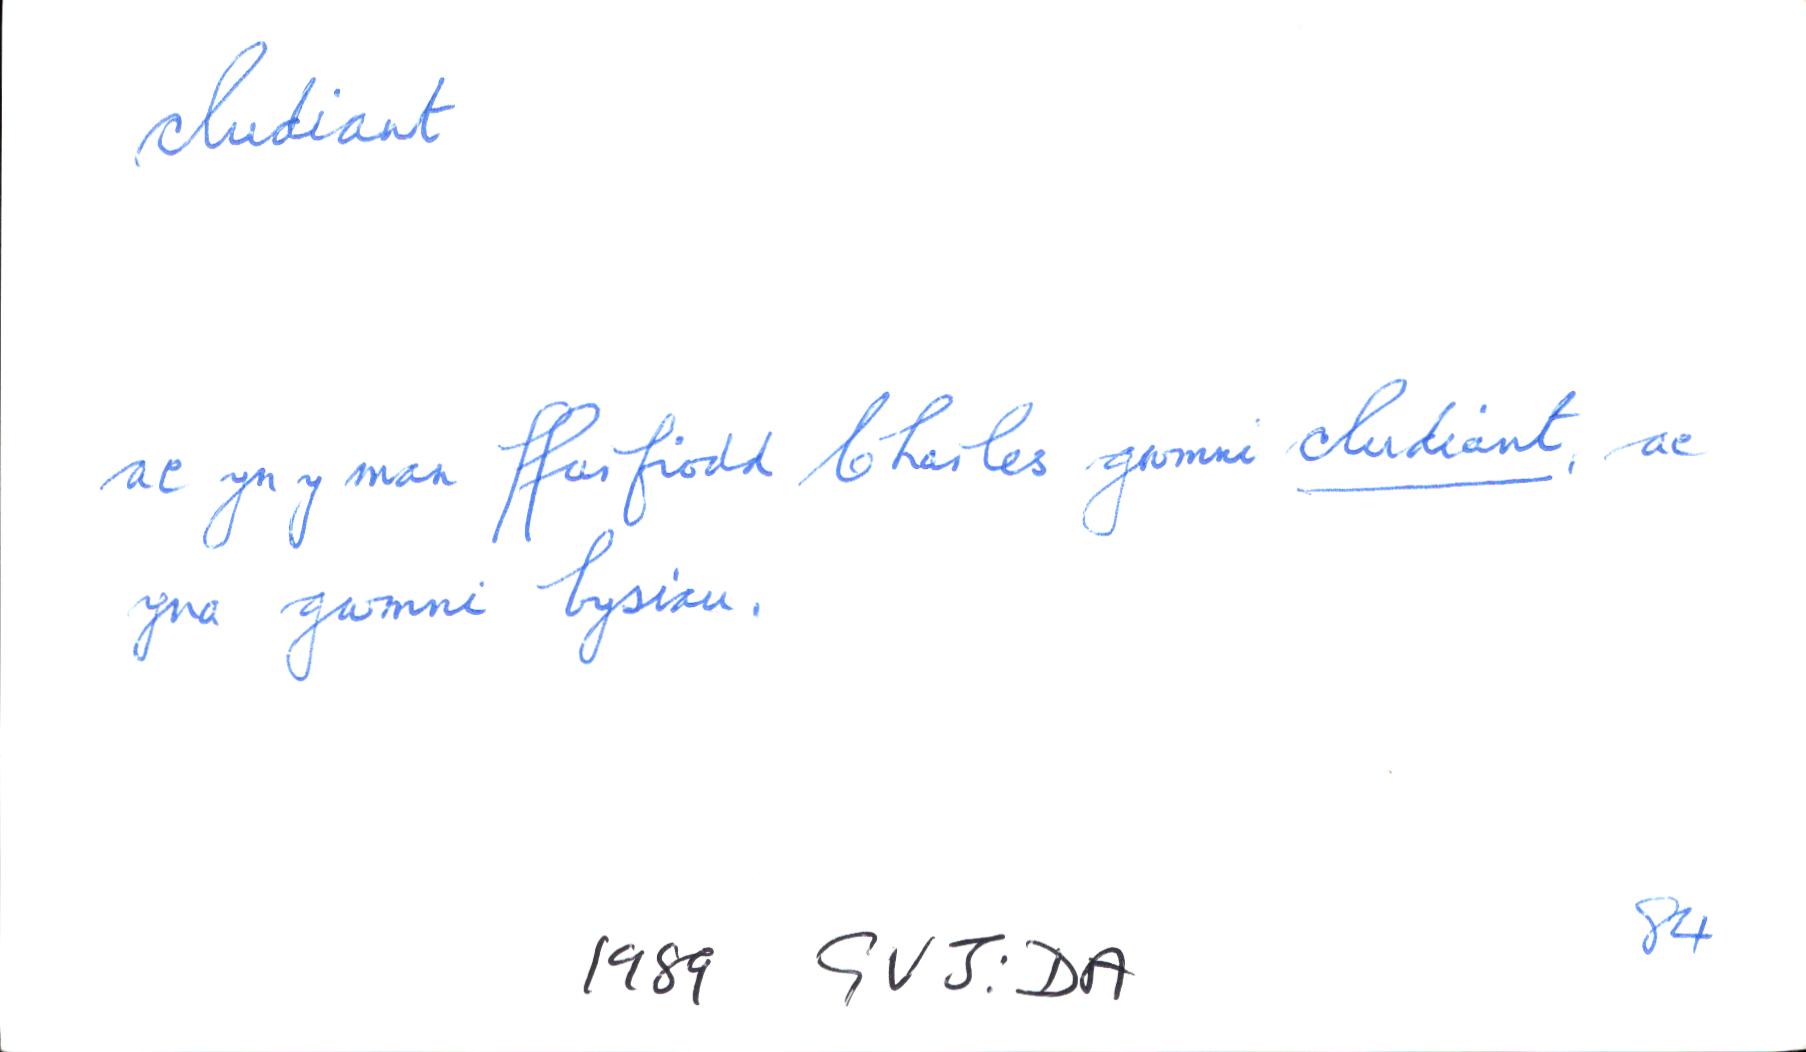 cludiant
ac yn y man ffurfiodd Charles gwmni cludiant, ac
yna gwmni bysiau.
84
1989 GVJ: DA